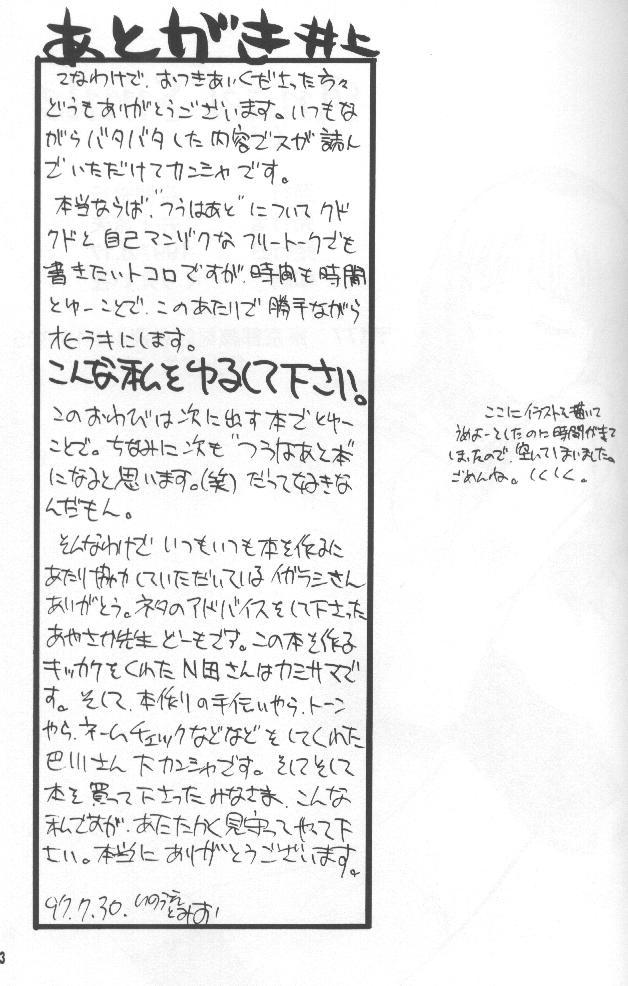 あとがき 井上
てなわけで、おつきあいくださった方々
どうもありがとうございます。いつもな
がらバタバタした内容でスが読ん
でいただけてカンシャです。
本当ならば、"つうはあと"について クド
クドと 自己マンゾクな フリートークでも
書きたいトコロですが、時間も時間
とゆーことで、このあたりで 勝手ながら
オヒラキにします。
こんな私をゆるして下さい。
このおわびは次に出す本でとゆー
ことで。ちなみに次も "つうはあと本"
になると思います。(笑) だって好きな
んだもん。
そんなわけで いつもいつも本を作るに
あたり協力していただいている イガラシさん
ありがとう。ネタのアドバイスをして下さった
あやさか先生 どーもです。この本を作る
キッカケをくれた N田さんはカミサマで
す。そして、本作りの手伝いやら、トーン
やら、ネームチェックなどなど をしてくれた
巴川さん 大カンシャです。そしてそして
本を買って下さった みなさま、こんな
私ですが、あたたかく 見守ってやって下
さい。本当に ありがとうございます。
97.7.30. いのうえ
とみお
ここにイラストを描いて
うめよーとしたのに時間が来て
しまったので、空いてしまいました。
ごめんね。しくしく。
3